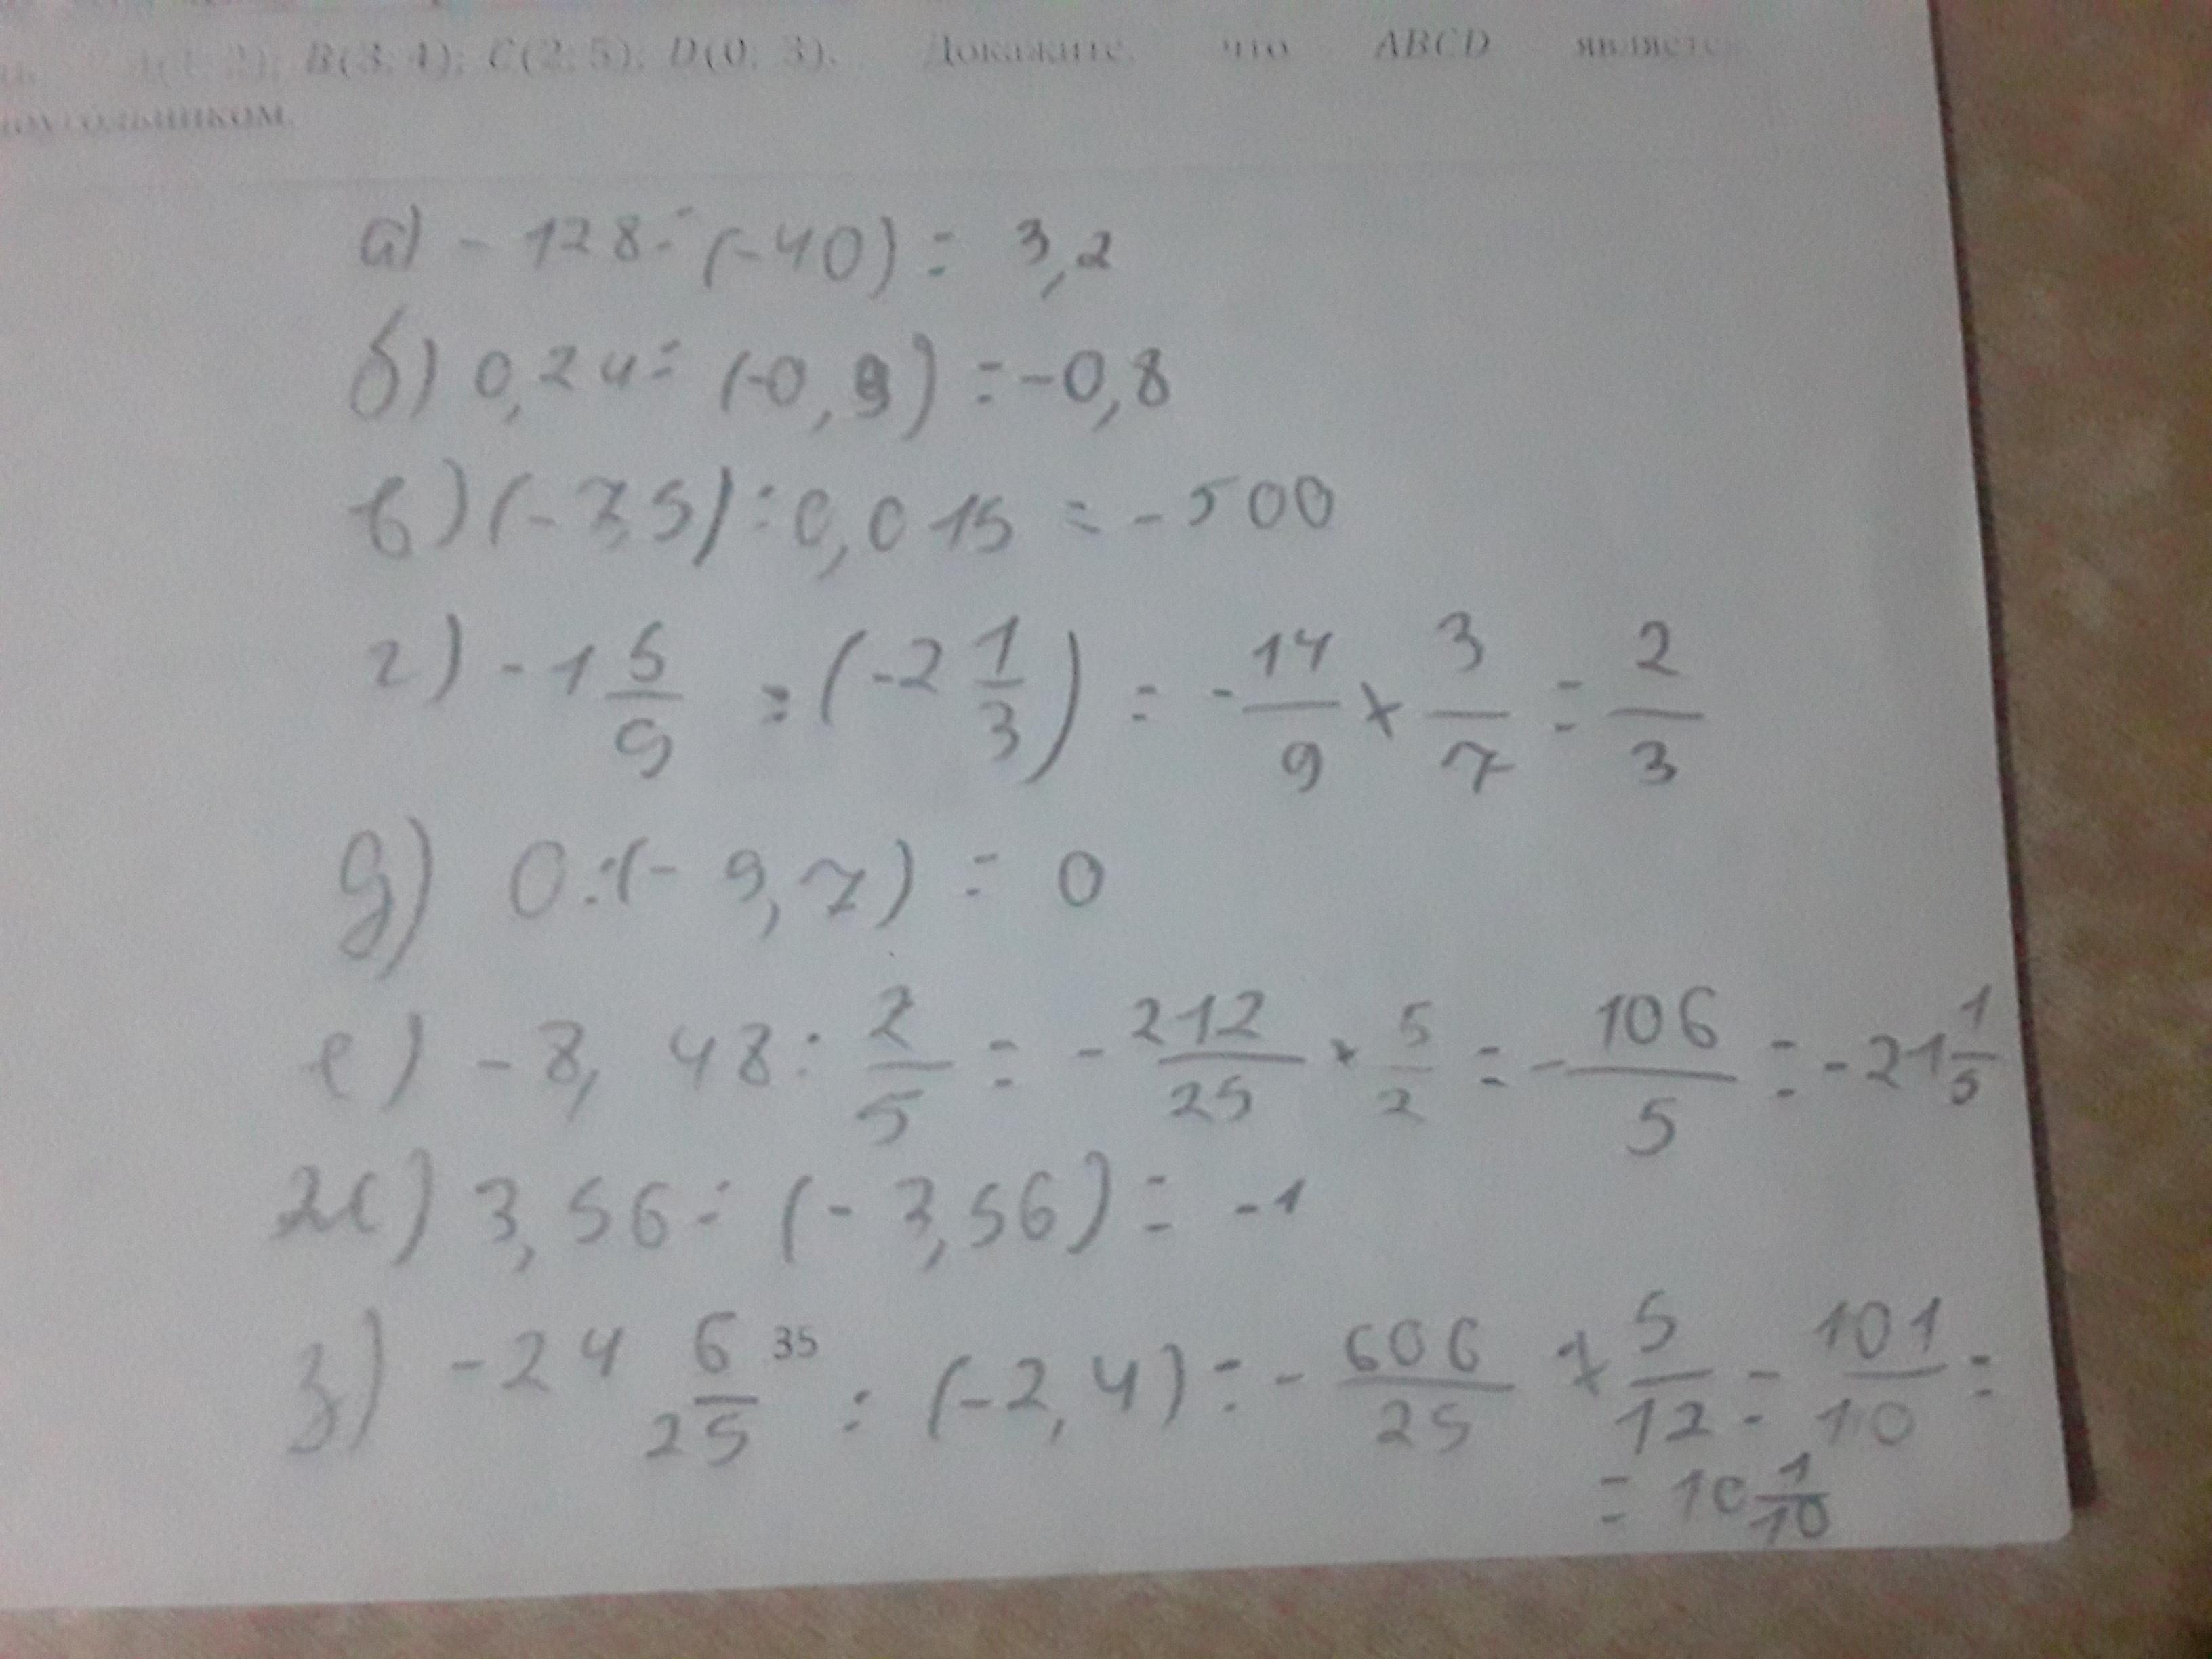 B(3; 4); C(2; 5); D(0; 3). Докажите, что ABCD являетс
а) - 128 : (-40) = 3,2
б) 0,24 : (-0,9) = -0,8
в) (-7,5) : 0,015 = -500
г) -1 5/9 : (-2 1/3) = - 14/9 × 3/7 = 2/3
д) 0 : (- 9,7) = 0
е) - 8, 48 : 2/5 = - 212/25 * 5/2 = - 106/5 = - 21 1/5
ж) 3,56 : (- 3,56) = -1
з) - 24 6/25 35 : (-2,4) = - 606/25 × 5/12 = 101/10 =
= 10 1/10